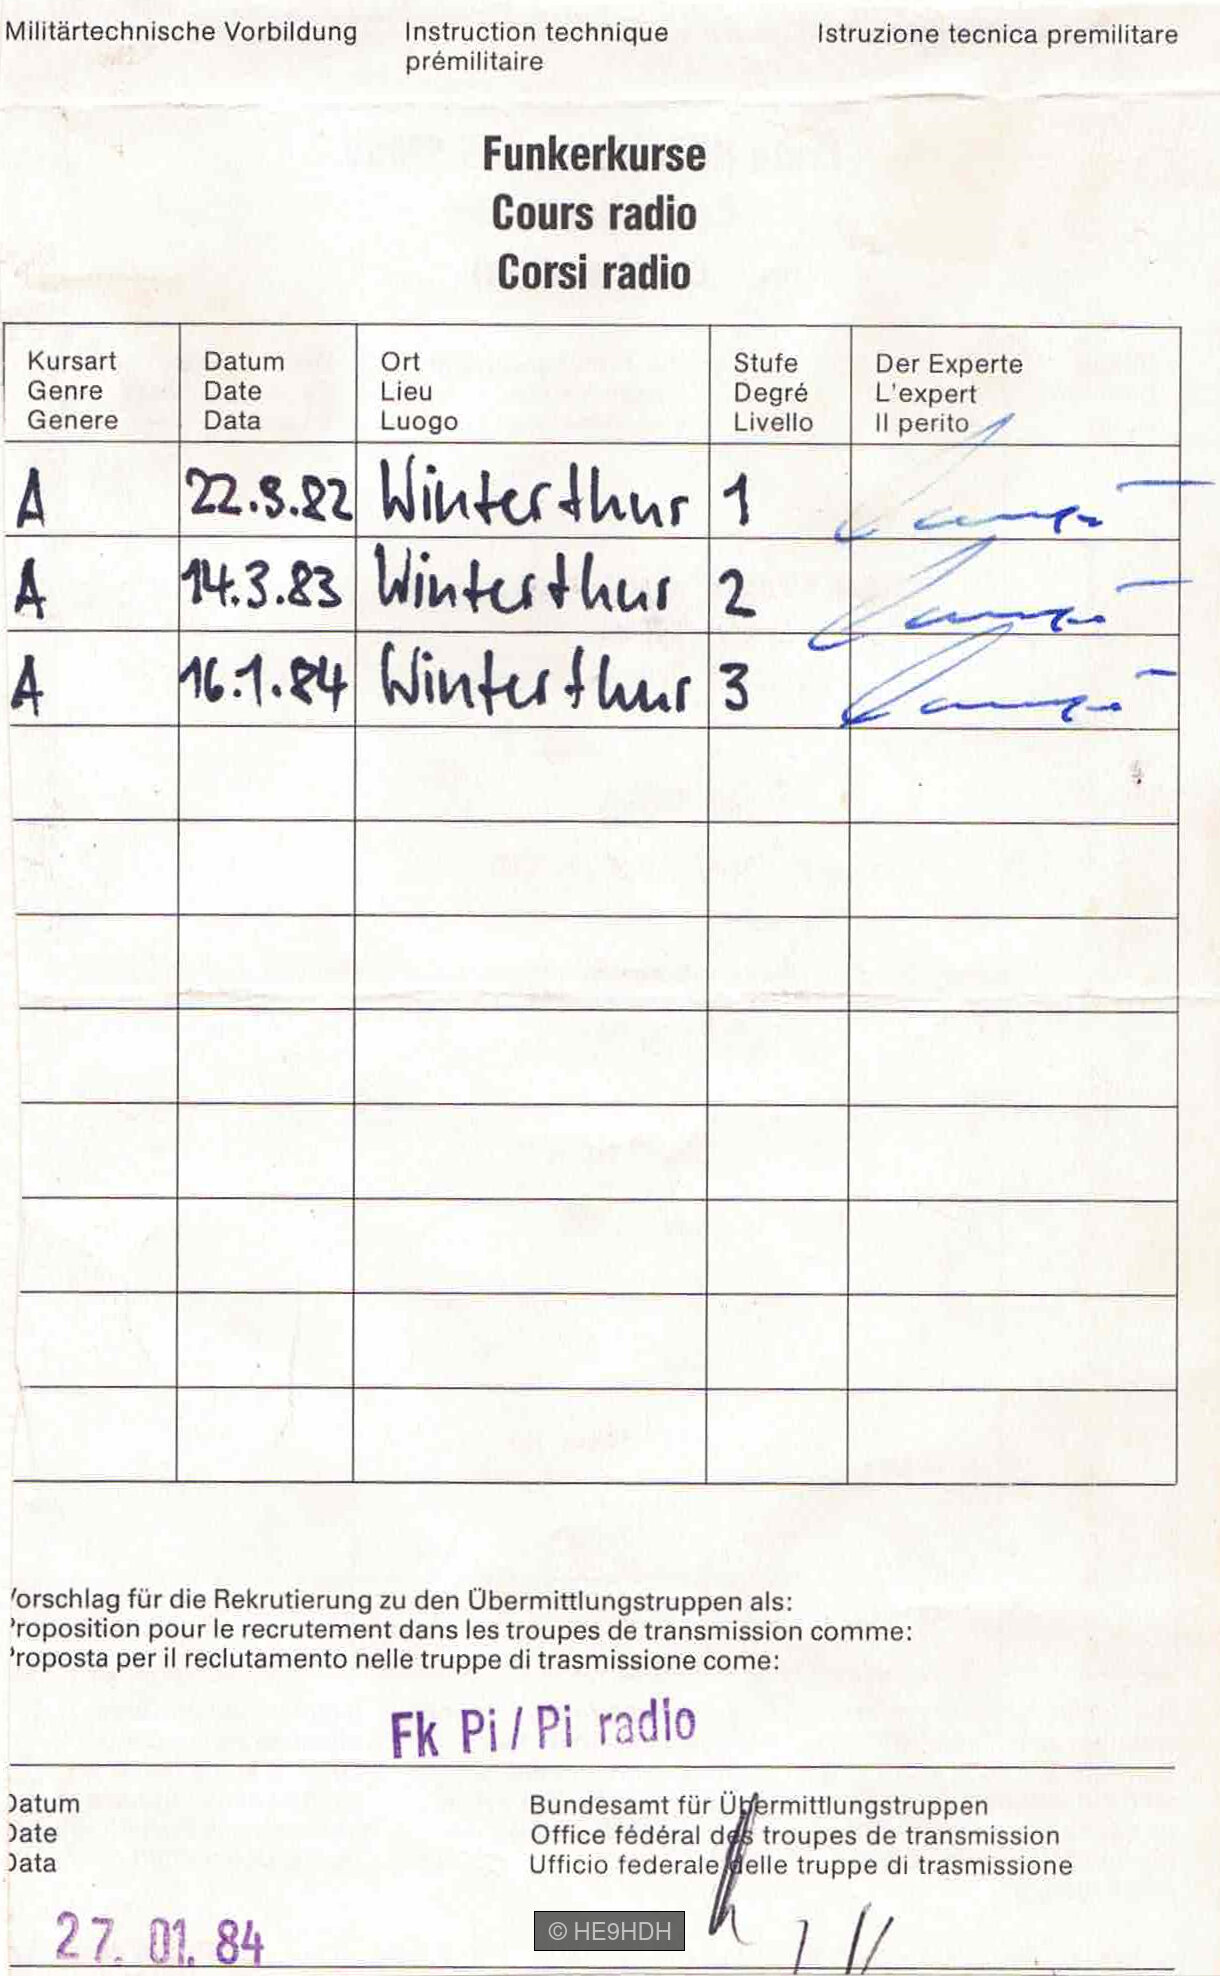 Militärtechnische Vorbildung Instruction technique prémilitaire Istruzione tecnica premilitare
Funkerkurse
Cours radio
Corsi radio
Kursart Datum Ort Stufe Der Experte
Genre Date Lieu Degré L'expert
Genere Data Luogo Livello Il perito
A 22.3.82 Winterthur 1
A 14.3.83 Winterthur 2
A 16.1.84 Winterthur 3
Vorschlag für die Rekrutierung zu den Übermittlungstruppen als:
Proposition pour le recrutement dans les troupes de transmission comme:
Proposta per il reclutamento nelle truppe di trasmissione come:
Fk Pi / Pi radio
Datum Bundesamt für Übermittlungstruppen
Date Office fédéral des troupes de transmission
Data Ufficio federale delle truppe di trasmissione
27. 01. 84
© HE9HDH